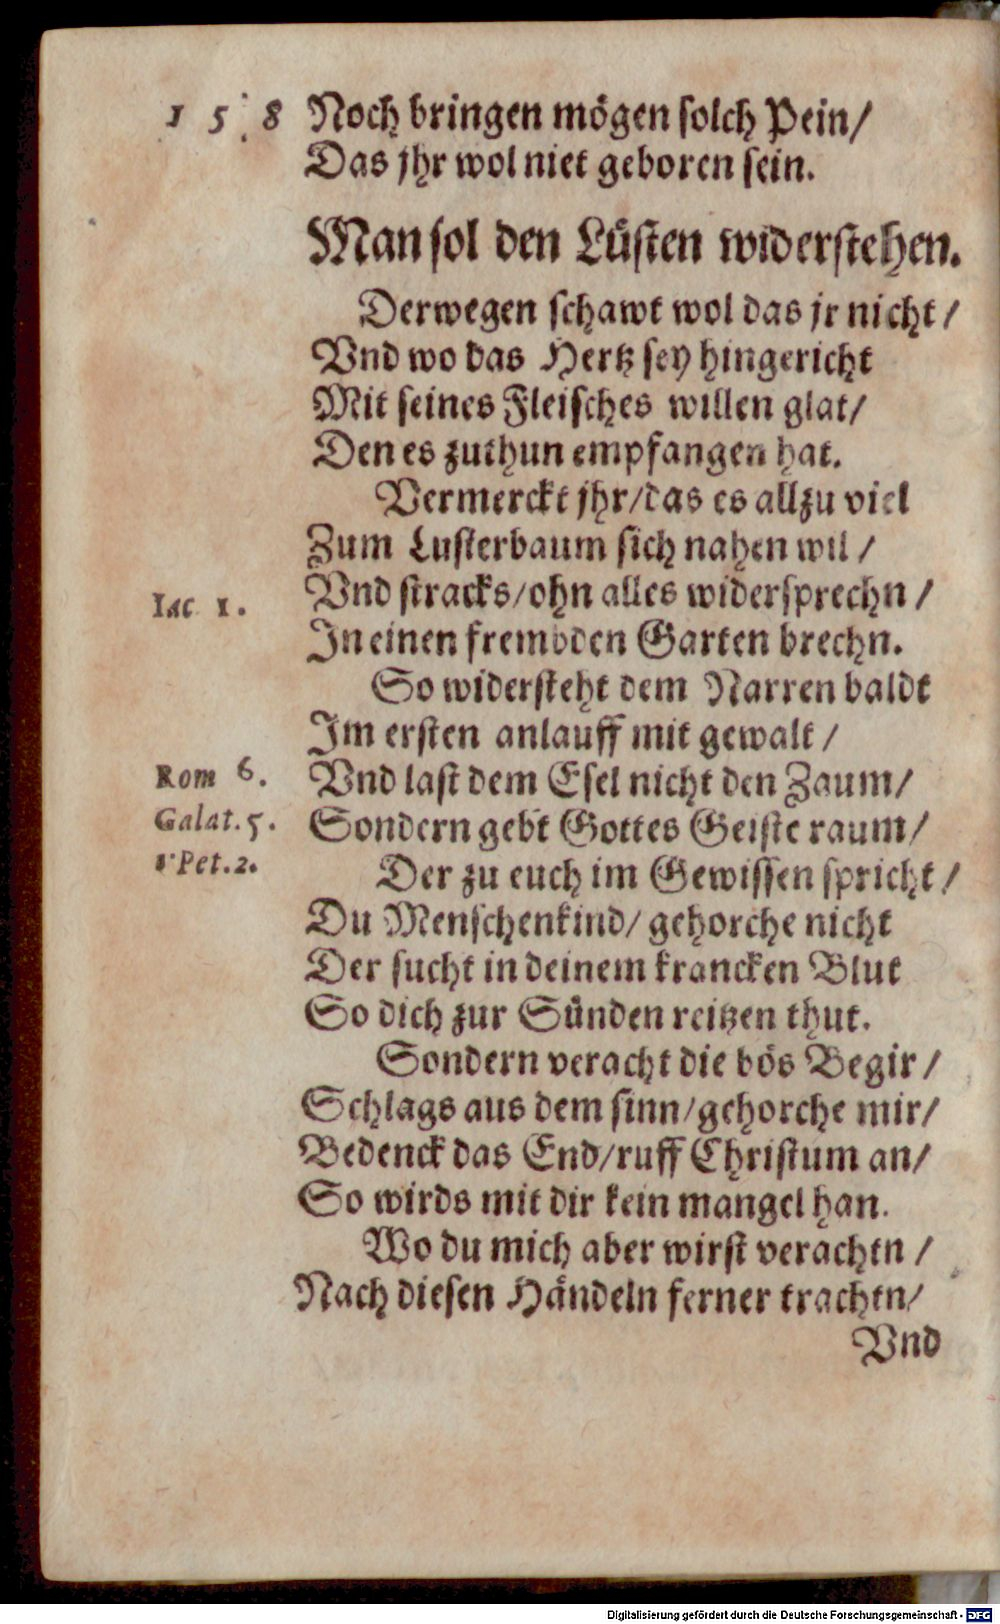 1 5 8 Noch bringen mögen solch Pein/
Das jhr wol niet geboren sein.
Man sol den Lüsten widerstehen.
Derwegen schawt wol das jr nicht/
Vnd wo das Hertz sey hingericht
Mit seines Fleisches willen glat/
Den es zuthun empfangen hat.
Vermerckt jhr/das es allzu viel
Zum Lusterbaum sich nahen wil/
Iac 1. Vnd stracks/ohn alles widersprechn/
In einen frembden Garten brechn.
So widersteht dem Narren baldt
Im ersten anlauff mit gewalt/
Rom 6. Vnd last dem Esel nicht den Zaum/
Galat. 5. Sondern gebt Gottes Geiste raum/
1 Pet. 2. Der zu euch im Gewissen spricht/
Du Menschenkind/ gehorche nicht
Der sucht in deinem krancken Blut
So dich zur Sünden reitzen thut.
Sondern veracht die bös Begir/
Schlags aus dem sinn/gehorche mir/
Bedenck das End/ruff Christum an/
So wirds mit dir kein mangel han.
Wo du mich aber wirst verachtn/
Nach diesen Händeln ferner trachtn/
Vnd
Digitalisierung gefördert durch die Deutsche Forschungsgemeinschaft - DFG